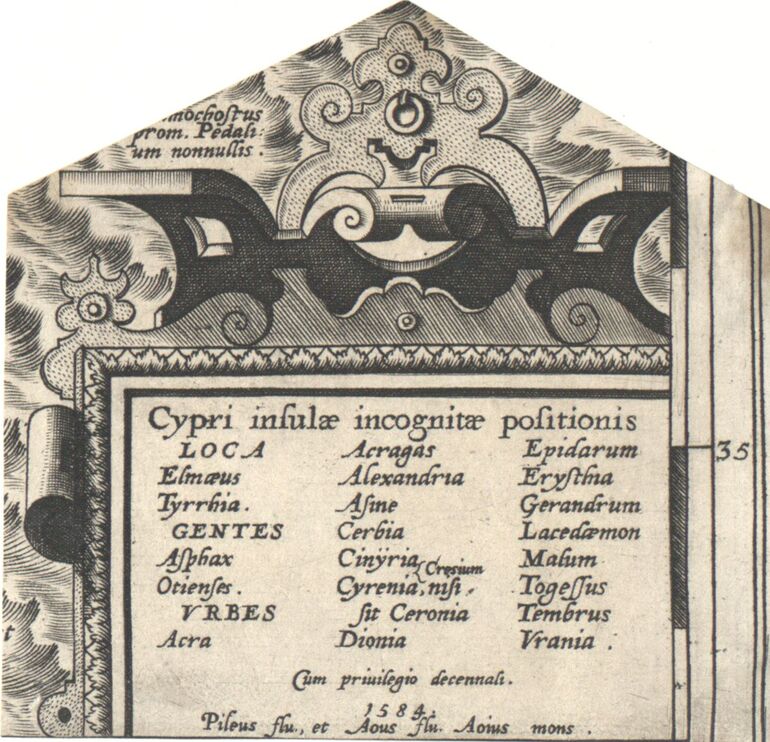 mochoſtus
prom. Pedali:
um nonnullis.
Cypri inſulæ incognitæ poſitionis
LOCA
Elmæus
Tyrrhia.
GENTES
Aſphax
Otienſes.
VRBES
Acra
Acragas
Alexandria
Aſine
Cerbia
Cinÿria
Creſium
Cyrenia, niſi
ſit Ceronia
Dionia
Epidarum
Eryſthia
Gerandrum
Lacedæmon
Malum
Togeſſus
Tembrus
Vrania.
Cum priuilegio decennali.
1584.
Pileus flu., et Aous flu. Aoius mons.
35